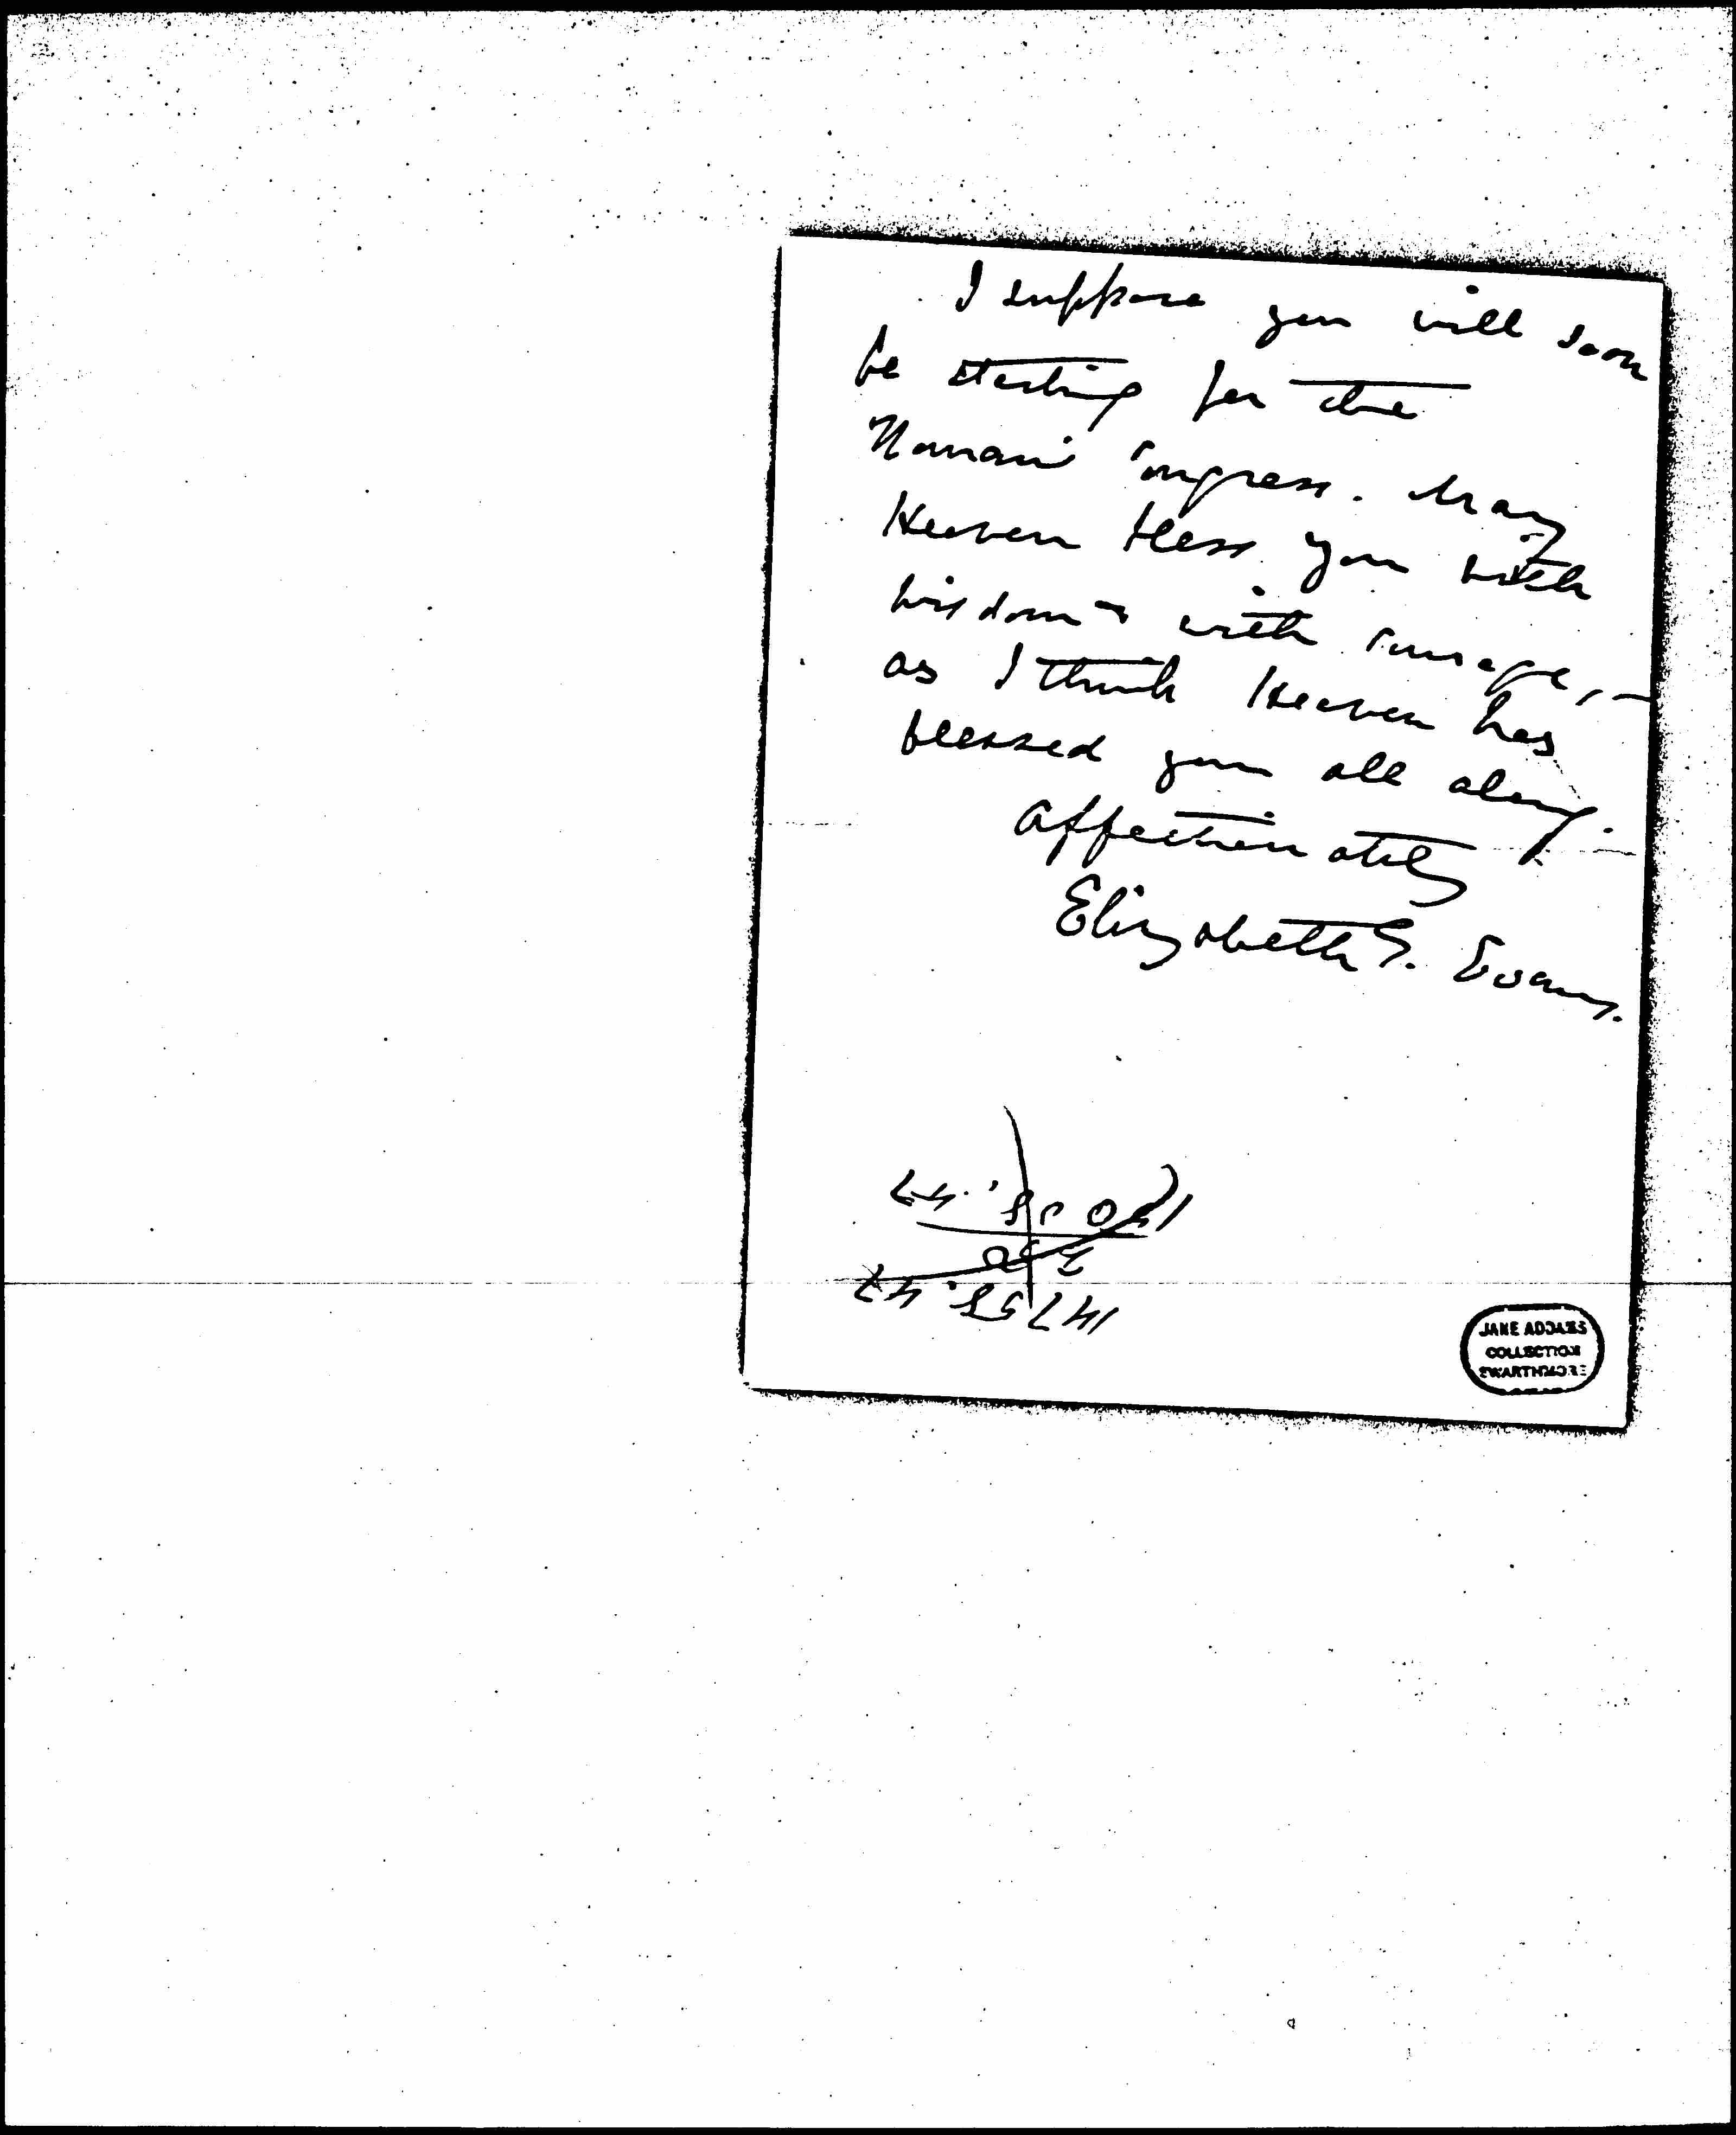 I suppose you will soon
be starting for the
Woman's Congress. May
Heaven bless you with
wisdom & with courage, -
as I think Heaven has
blessed you all along.
Affectionately
Elizabeth G. Evans.
14758.47
JANE ADDAMS
COLLECTION
SWARTHMORE